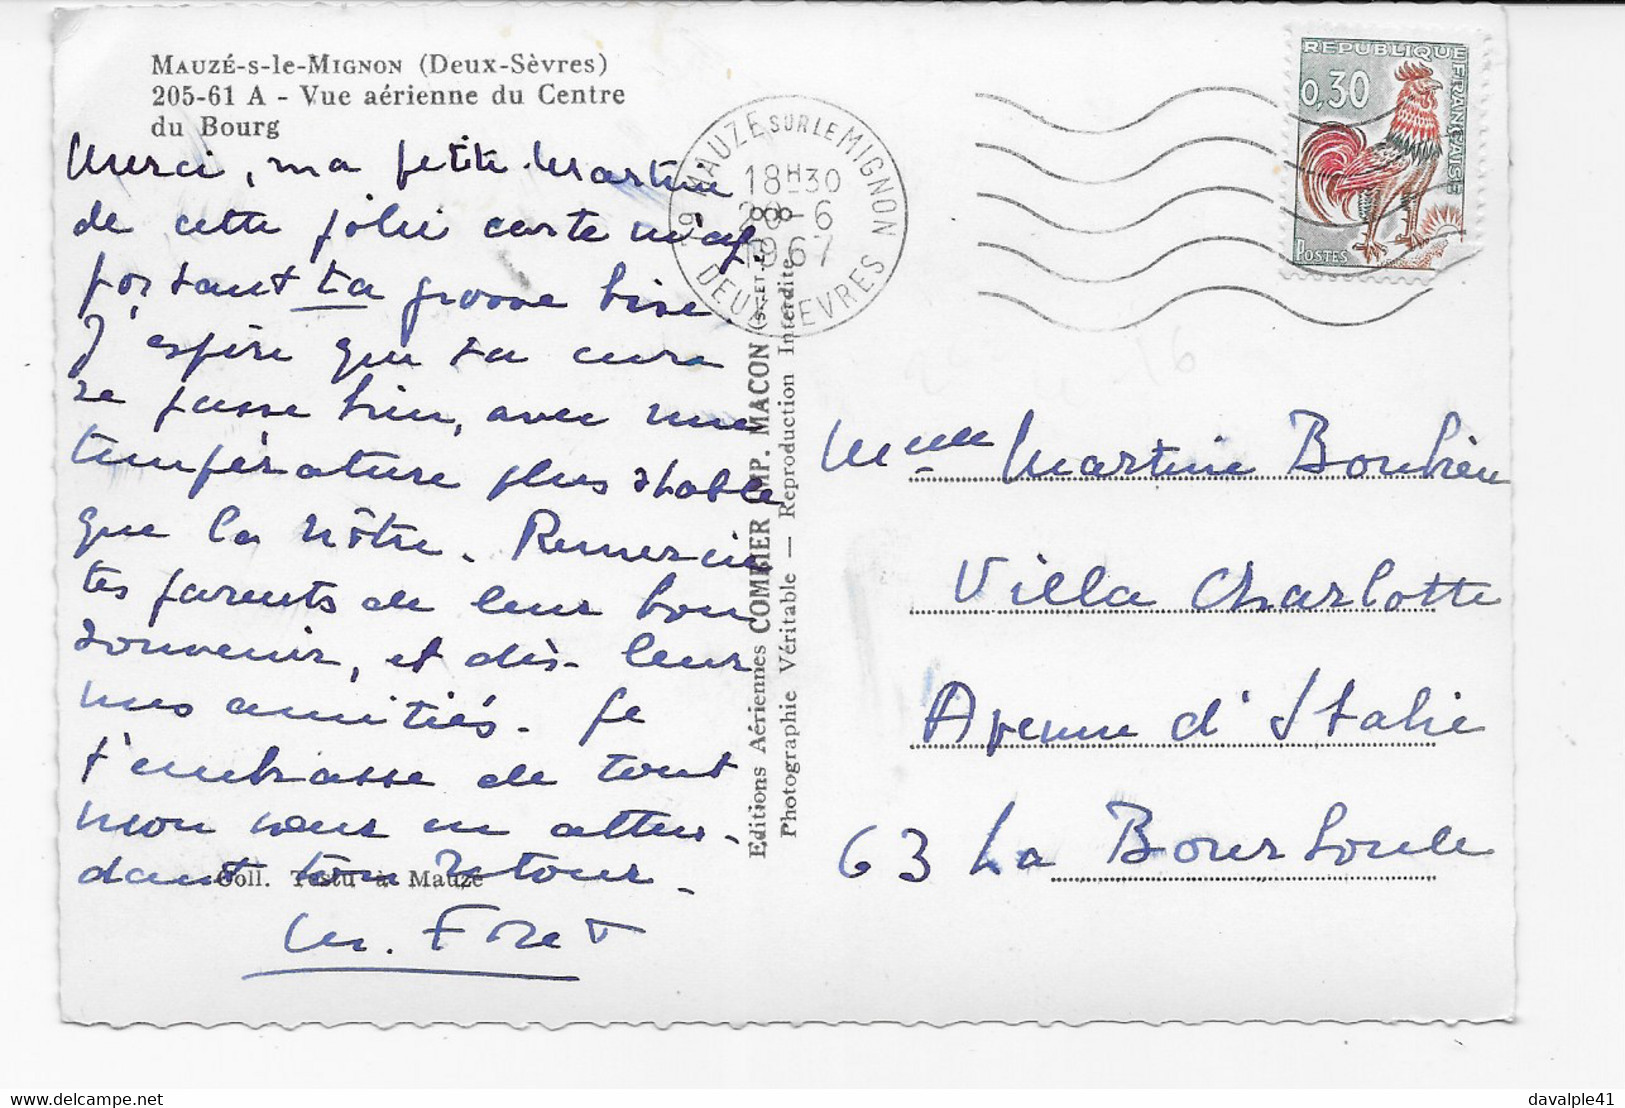 MAUZÉ-s-le-MIGNON (Deux-Sèvres)
205-61 A - Vue aérienne du Centre
du Bourg
Merci, ma petite Martine
de cette jolie carte m'ap
portant ta grosse bise.
J'espère que ta cure
se passe bien, avec une
température plus stable
que la nôtre. Remercie
tes parents de leur bon
souvenir, et dis-leur
mes amitiés. Je
t'embrasse de tout
mon cœur en atten-
dant ton retour.
Coll. Testu à Mauzé
M. Foret
MAUZE SUR LE MIGNON
18H30
28-6
1967
79
DEUX SEVRES
REPUBLIQUE FRANÇAISE
0,30
POSTES
Editions Aériennes COMBIER IMP. MACON
Photographie Véritable — Reproduction Interdite
Melle Martine Bouhier
Villa Charlotte
Avenue d'Italie
63 La Bourboule
davalple41